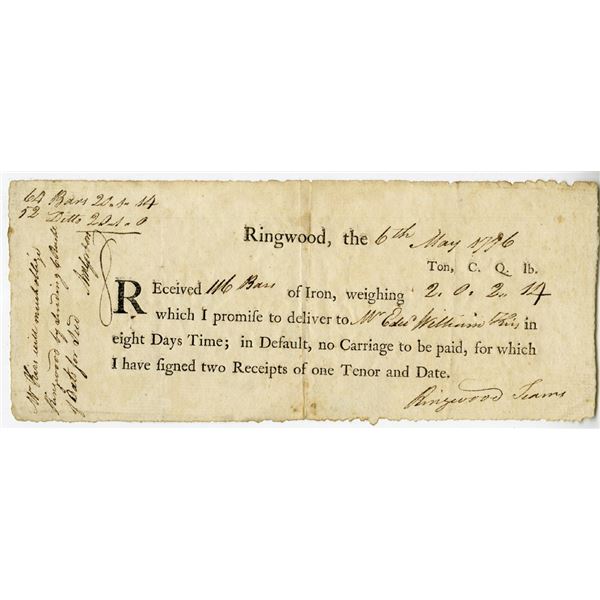 64 Bars 20.1.14
52 Ditto 20.1.0
Ringwood, the 6th May 1796
Ton, C. Q. lb.
REceived 116 Bars of Iron, weighing 2. 0. 2. 14
which I promise to deliver to Mr Edwd William in
eight Days Time; in Default, no Carriage to be paid, for which
I have signed two Receipts of one Tenor and Date.
Ringwood Teams
Mr will much oblige
Ringwood by sending
of Oats for Seed